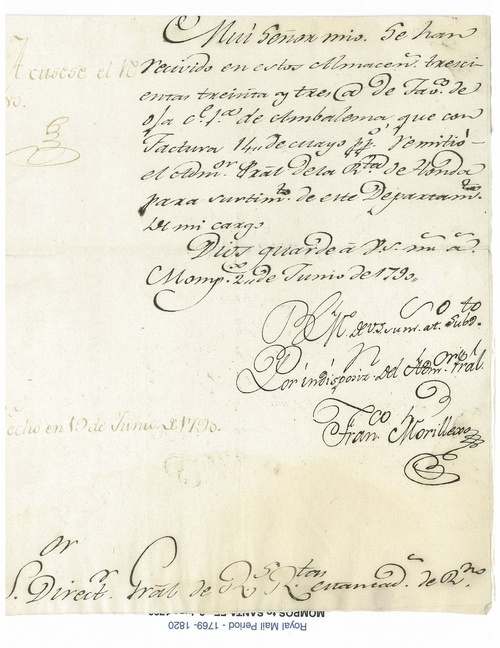 Muỉ Señor mio. Se han
Acusese el Rvo. recivido en estos Almacen.s tresci-
entas treinta y tres @ de Tav.co de
oja c.e 1.a de Ambalema, que con
Factura 14,, de Mayo pp.o remitió
el Adm.or Pral de la R.ta de Honda
para surtim.to de este Departam.to
de mi cargo
Dios guarde á V.S. m.s a.s
Momp.x 2,, de Junio de 1793,,
B L M. de V.S. su m. at. Subd.
Por indisposiz.n del Adm.or Pral.
Fran.co Morillexo
echo en 19 de Junio de 1793.
S.or Direct.r Gral de R.s R.tas estancad.s de R.no
MOMPOS to SANTA FE
Royal Mail Period - 1769- 1820